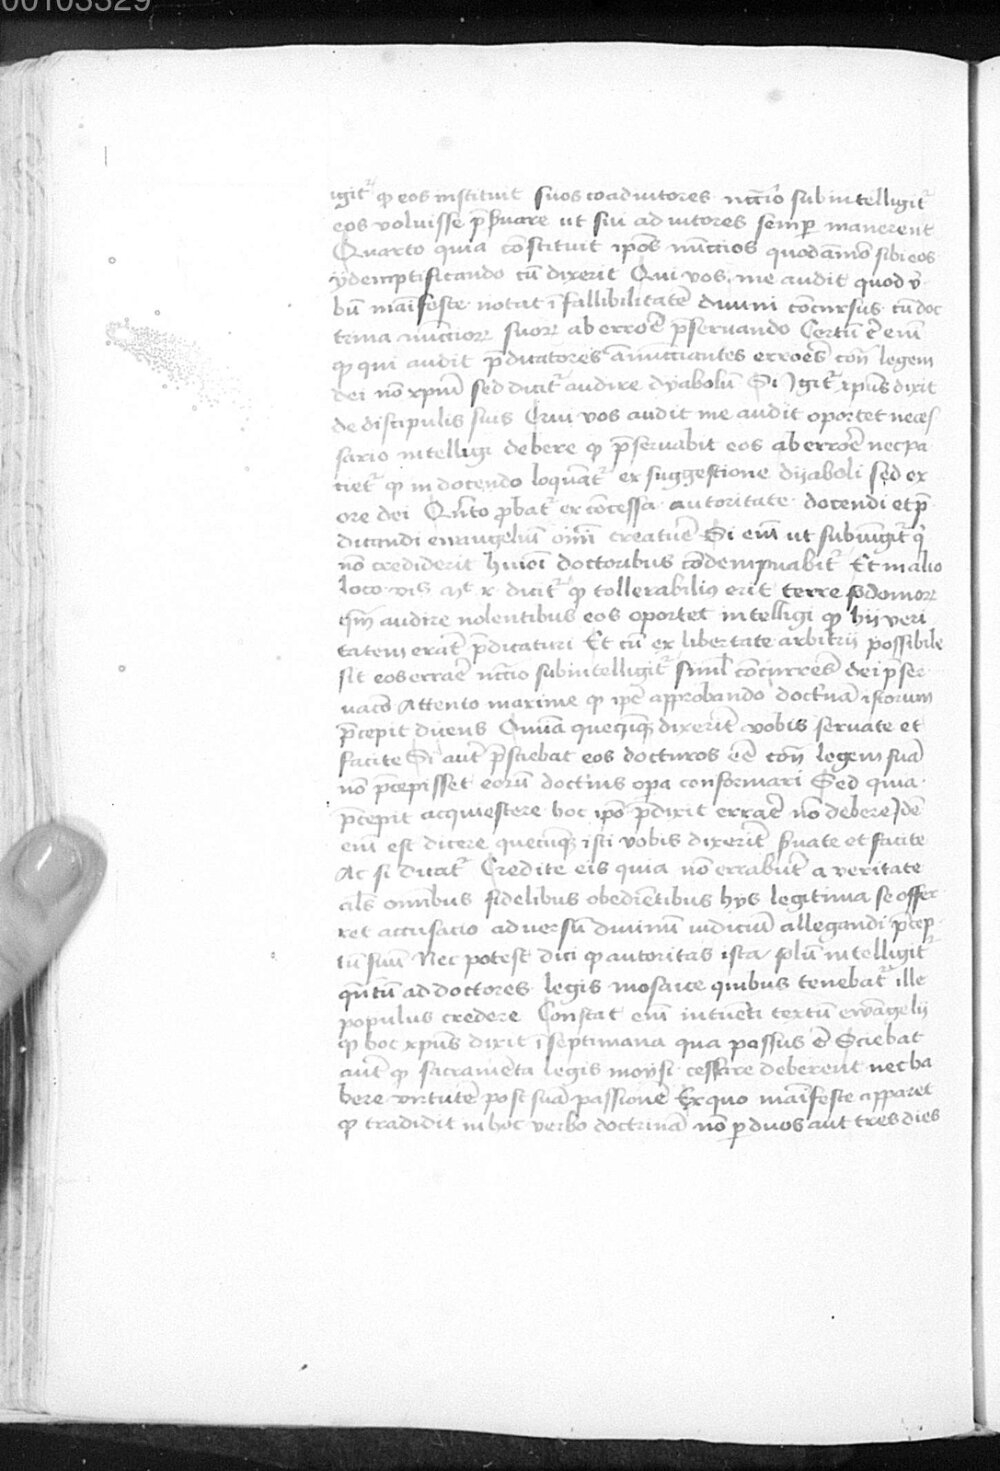 00103329
igitᷣ ꝙ eos instituit suos coadiutores nc̄c̄io subintelligitᷣ
eos voluisse p̄seruare ut sui adiutores semꝑ manerent
Quarto quia cōstituit ip̄os nūccios quodāmō sibi eos
ydemptificando cū dixerit Qui vos me audit quod v̄
bū māifeste notat īfallibilitatē diuini cōcursus cū doc
trina nūccioꝝ suoꝝ ab erroē p̄seruando Certū ē eni᷒
ꝙ qui audit p̄dicatores ānūcciantes erroēs cōn̄ legem
dei nō xp̄m̄ sed dicitᷣ audire dyabolū Si igitᷣ xp̄us dixit
de discipulis suis Qui vos audit me audit oportet neces
sario intelligi debere ꝙ p̄seruabit eos ab erroē nec pa
tietᷣ ꝙ in docendo loquātᷣ ex suggestione dyaboli sed ex
ore dei Qn̄to ꝓbatᷣ ex cōcessa autoritate docendi et p̄
dicandi euangeliū om̄i creatuē Si eni᷒ ut subiūgitᷣ qͥ
nō crediderit huiōi doctoribus cōdempnabitᷣ Et in alio
loco dicitᷣ ꝙ tollerabilius erit terre sodomoꝝ
audire nolentibus eos oportet intelligi ꝙ hij veri
tatem erāt p̄dicaturi Et cū ex libertate arbitrii possibile
sit eos erraē nc̄c̄io subintelligitᷣ simul cōcurrere dei p̄ser
uacō Attento maxime ꝙ ip̄e approbando doct'nā istorum
p̄cepit dicens Omīa quecūqꝫ dixerīt vobis seruate et
facite Si aut̄ p̄sciebat eos docturos eē cōn̄ legem suā
nō p̄cepisset eorū doctīnis opa conformari Sed quia
p̄cepit acquiescere hoc ip̄o p̄dixit erraē nō debere Idē
eni᷒ est dicere quecūqꝫ isti vobis dixerīt suate et facite
Ac si dicat᷒ Credite eis quia nō errabūt a veritate
als̄ omībus fidelibus obediētibus hys legitima se offer
ret accusacio aduersū diuinū iudiciū allegandi p̄cep
tū suū Nec potest dici ꝙ autoritas ista solū intelligitᷣ
qn̄tū ad doctores legis mosaice quibus tenebatᷣ ille
populus credere Constat eni᷒ intuēti textū ewāgelij
ꝙ hoc xp̄us dixit ī septimana qua passus ē Sciebat
aut̄ ꝙ sacramēta legis moysi cessare deberent nec ha
bere virtutē post suā passionē Ex quo māifeste apparet
ꝙ tradidit in hoc verbo doctrinā nō ꝑ duos aut tres dies